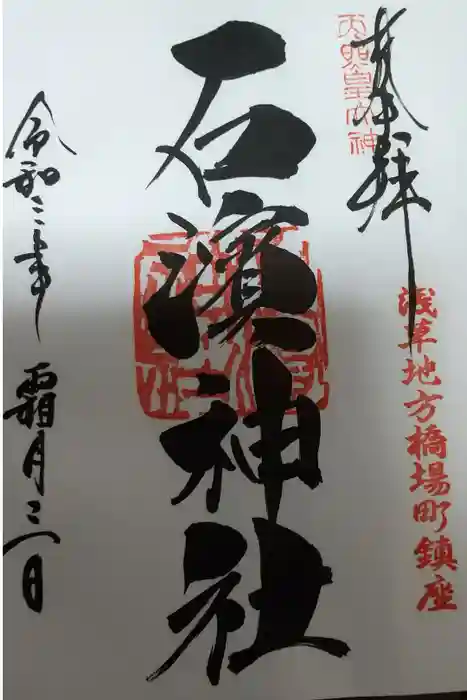 奉拝
天照皇大神
浅草地方橋場町鎮座
石濱神社
令和三年 霜月三日